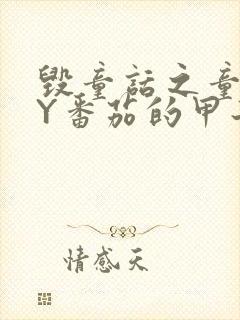 毁童话之童
Y番茄的甲
情感天